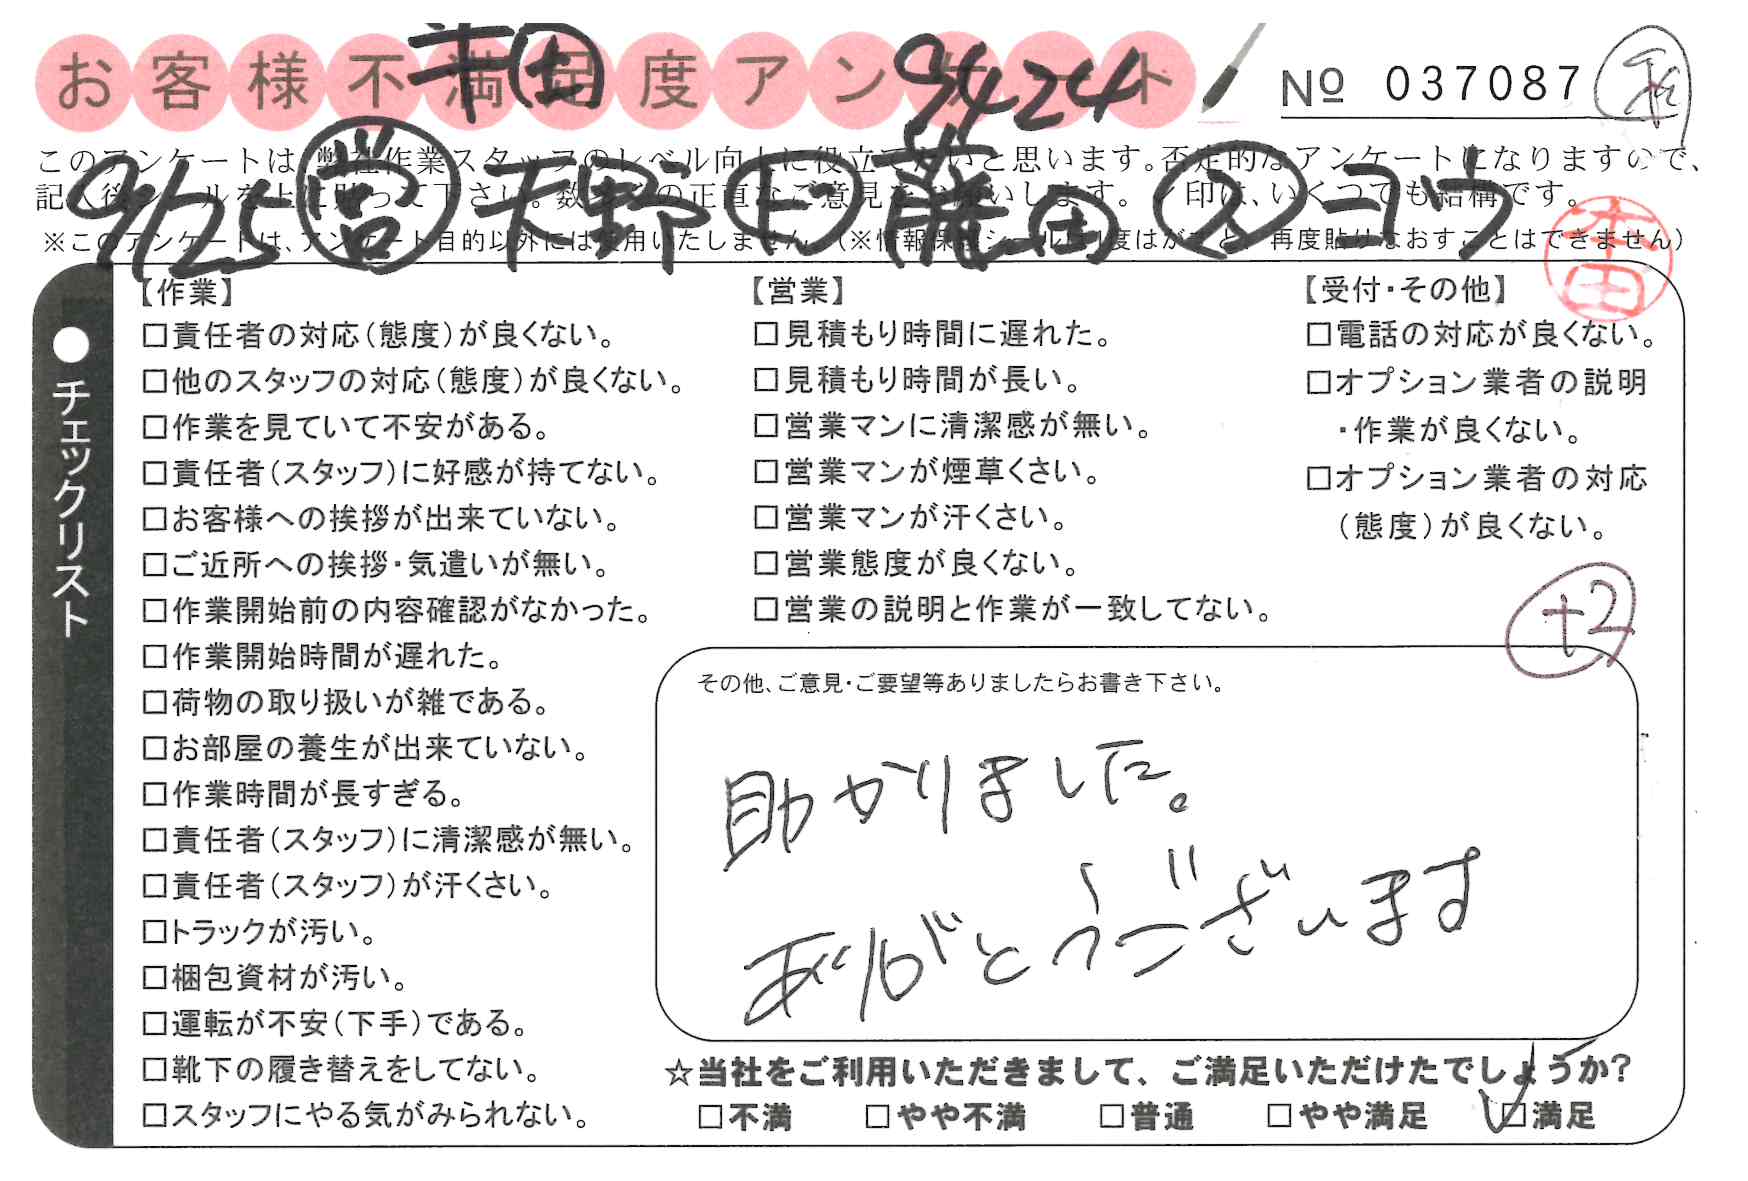 お客様不満足度アンケート
半田 9424
No 037087
このアンケートは、弊社作業スタッフのレベル向上に役立てたいと思います。否定的なアンケートになりますので、
記入後シールを上に貼って下さい。数多くの正直なご意見をお願いします。✓印は、いくつでも結構です。
※このアンケートは、アンケート目的以外には使用いたしません。(※情報保護シールは1度はがすと、再度貼りなおすことはできません)
9/25 営 天野 ト 藤田 ス コウ
本田
●チェックリスト
【作業】
□責任者の対応(態度)が良くない。
□他のスタッフの対応(態度)が良くない。
□作業を見ていて不安がある。
□責任者(スタッフ)に好感が持てない。
□お客様への挨拶が出来ていない。
□ご近所への挨拶・気遣いが無い。
□作業開始前の内容確認がなかった。
□作業開始時間が遅れた。
□荷物の取り扱いが雑である。
□お部屋の養生が出来ていない。
□作業時間が長すぎる。
□責任者(スタッフ)に清潔感が無い。
□責任者(スタッフ)が汗くさい。
□トラックが汚い。
□梱包資材が汚い。
□運転が不安(下手)である。
□靴下の履き替えをしてない。
□スタッフにやる気がみられない。
【営業】
□見積もり時間に遅れた。
□見積もり時間が長い。
□営業マンに清潔感が無い。
□営業マンが煙草くさい。
□営業マンが汗くさい。
□営業態度が良くない。
□営業の説明と作業が一致してない。
【受付・その他】
□電話の対応が良くない。
□オプション業者の説明
・作業が良くない。
□オプション業者の対応
(態度)が良くない。
+2
その他、ご意見・ご要望等ありましたらお書き下さい。
助かりました。
ありがとうございます
☆当社をご利用いただきまして、ご満足いただけたでしょうか?
□不満 □やや不満 □普通 □やや満足 ☑満足